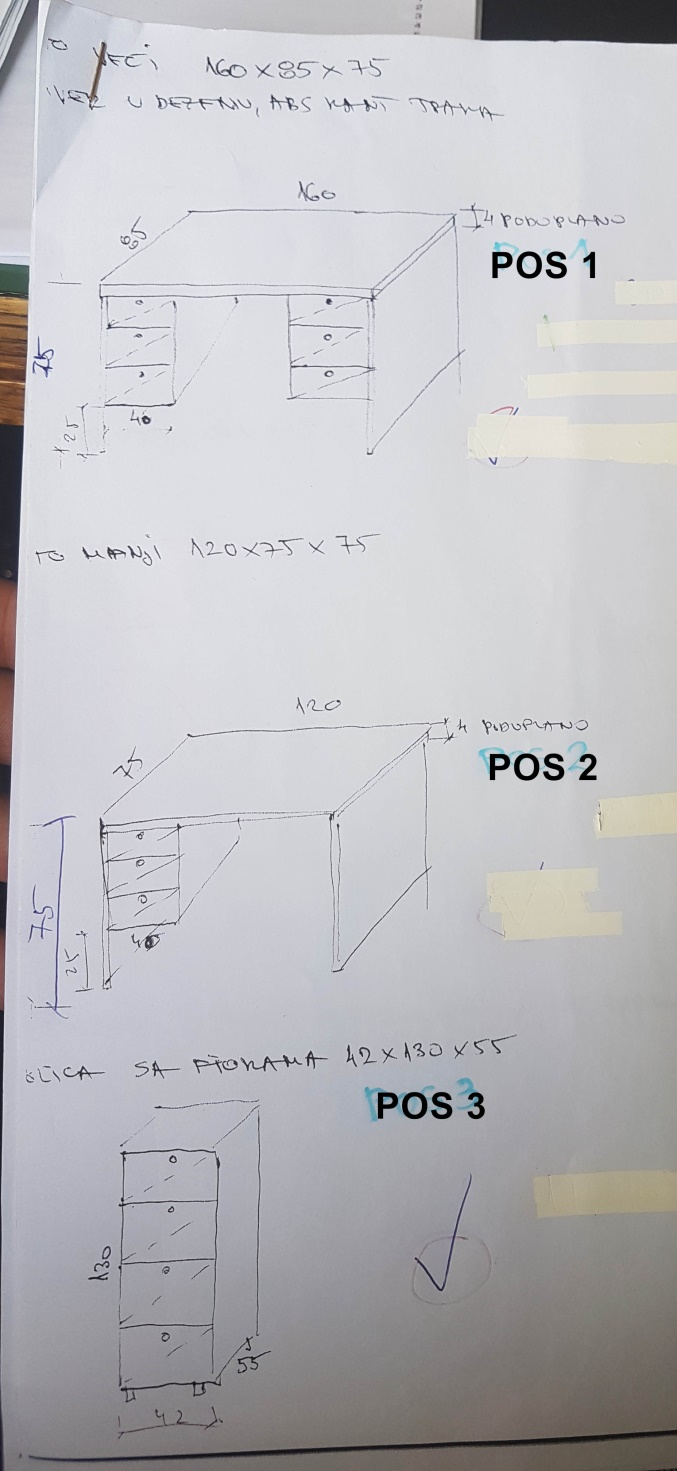 VEĆI 160x85x75
IVER U DEZENU, ABS KANT TRAKA
160
85
4 PODUPLANO
POS 1
75
40
25
TO MANJI 120x75x75
120
75
4 PODUPLANO
POS 2
75
40
25
SA FIOKAMA 42x130x55
POS 3
130
55
42